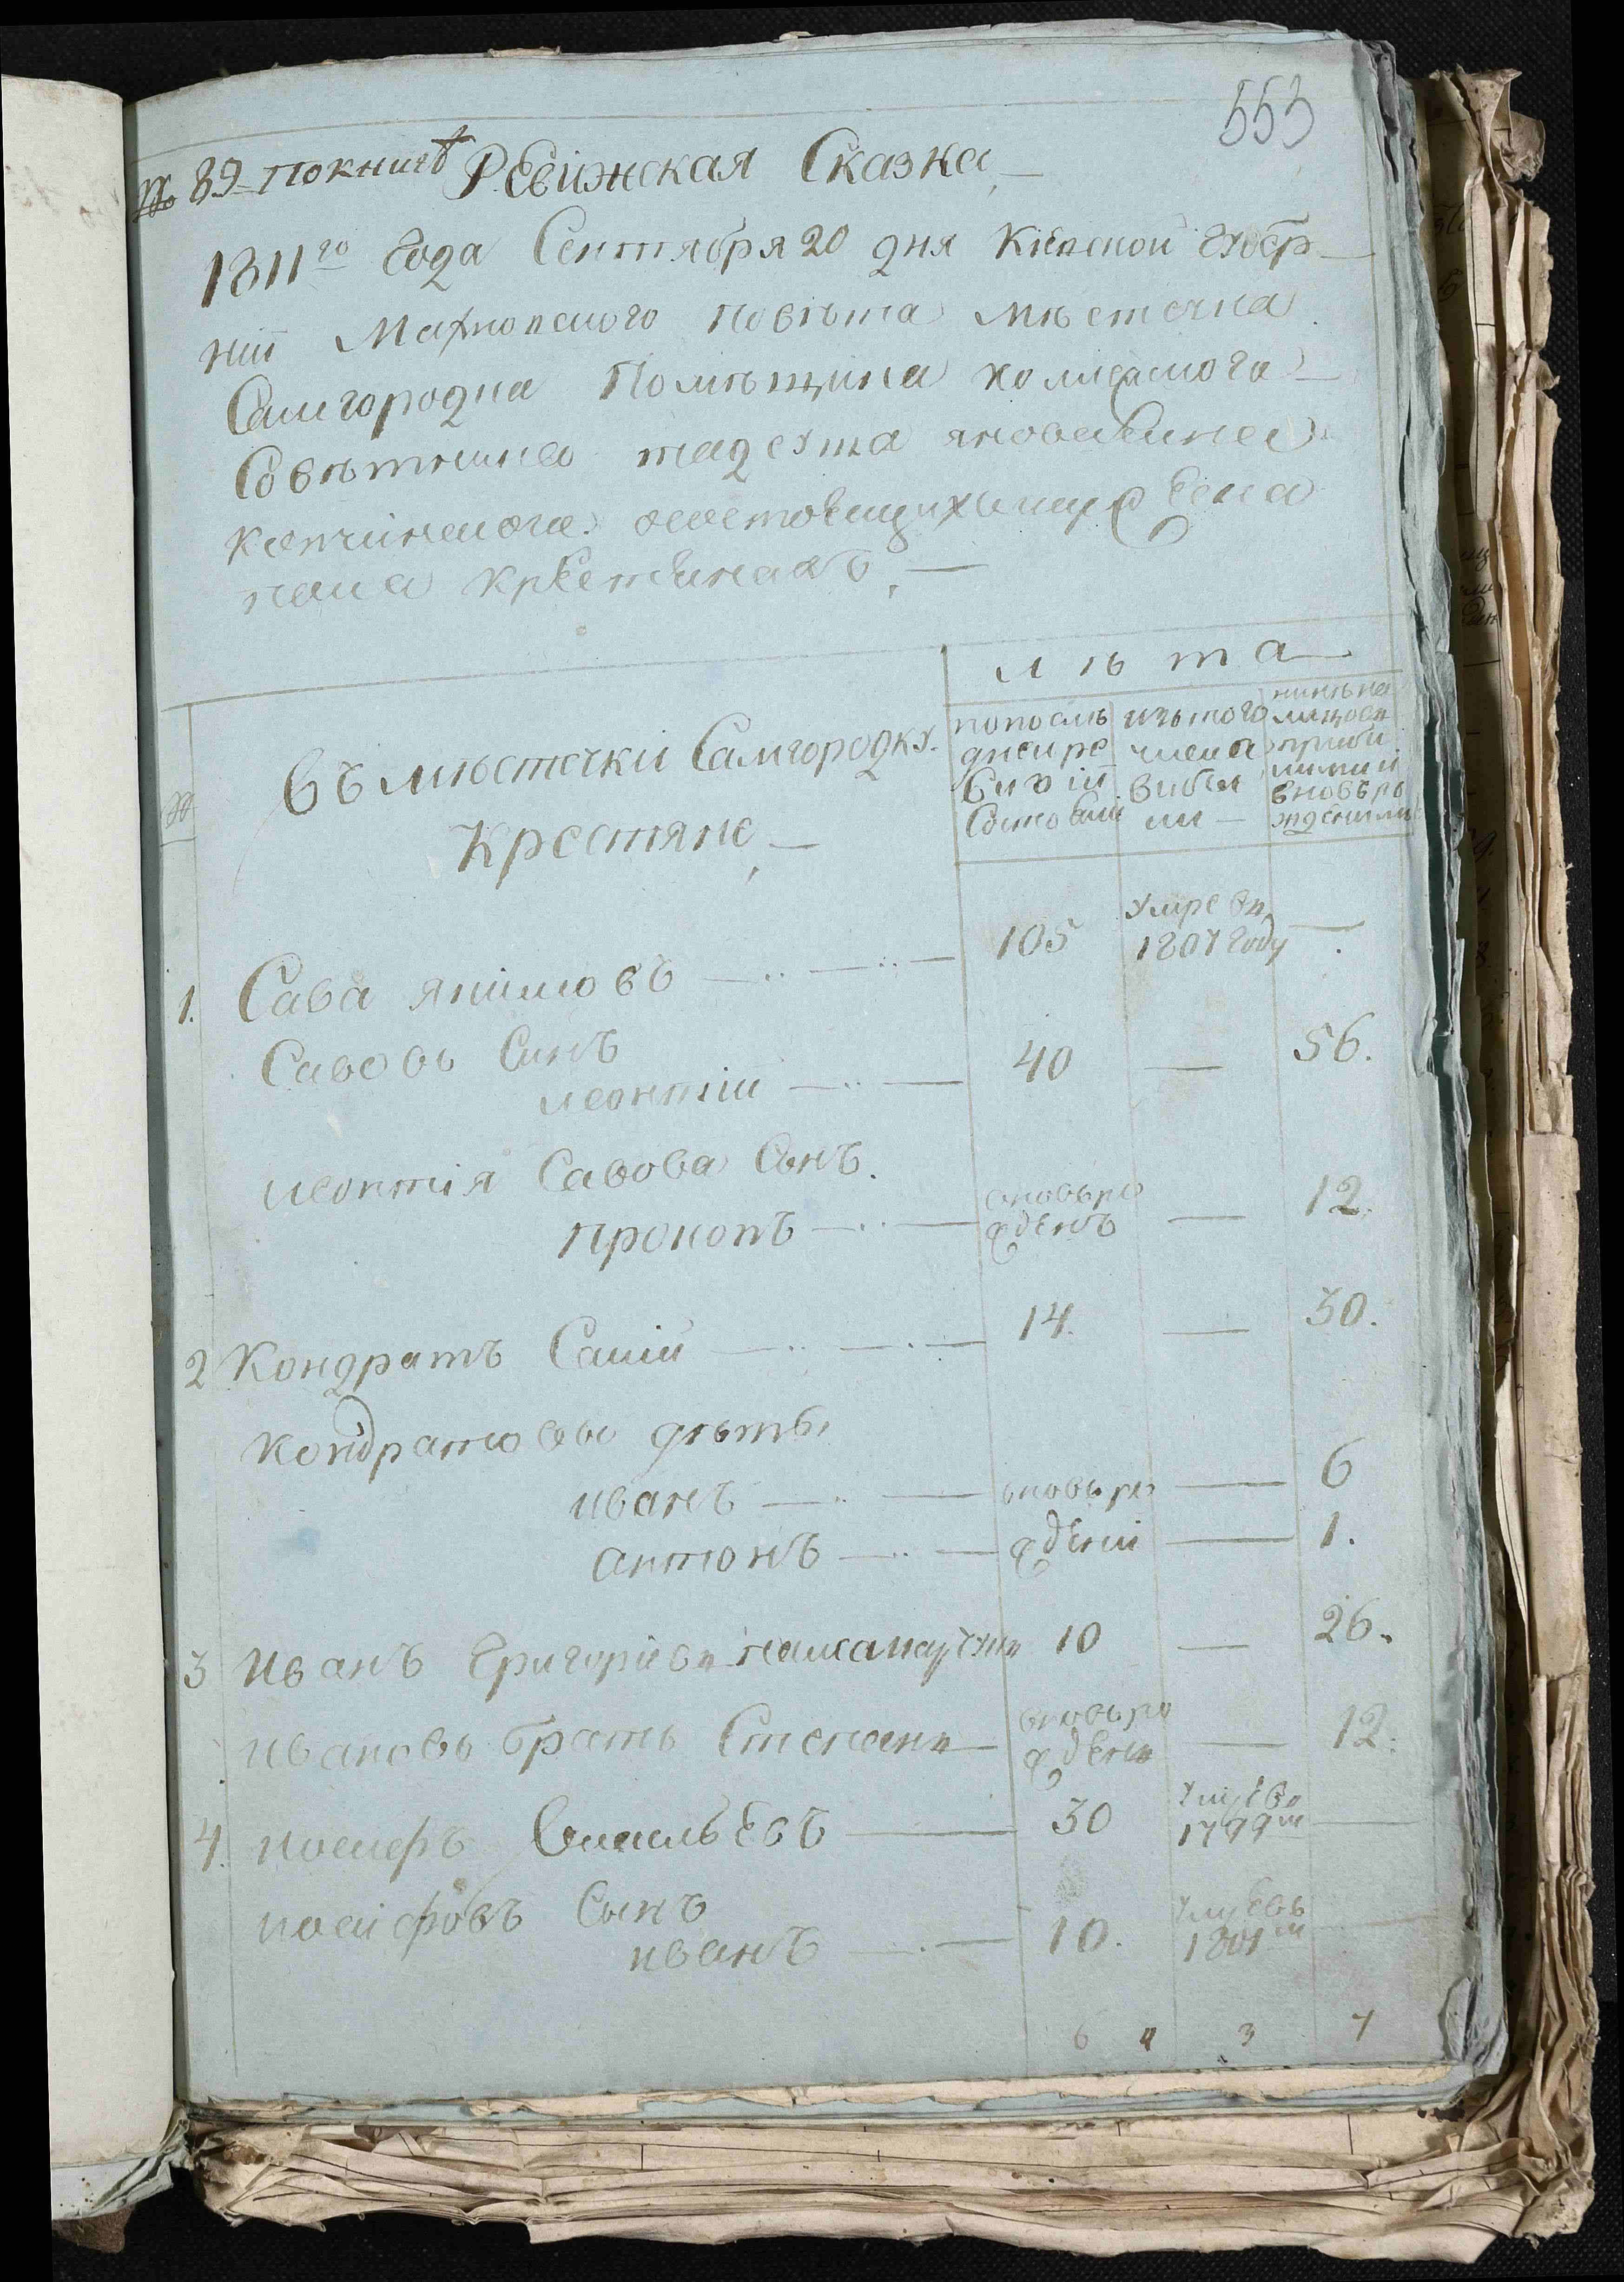 553
№ 89 По книгѣ Ревижская Сказка
1811го Года Сентября 20 дня Кіевской губер
ніи Махновского повѣта мѣстечка
Самгородка Помѣщика колежского
Совѣтника тадеуша яновасина
состоящихъ
крестянахъ
лѣта
№
Въ мѣстечки Самгородку
Крестяне
по послѣ
дней ре
визіи
Состояли
изъ того
числа
вибы
ли
нинѣ на
лицо съ
приби
лими и
вновь ро
жденими
1. Сава якимовъ 105 умре въ 1807 году
Савовъ Синъ
леонтіи 40 56.
леонтія Савова Сынъ
прокопъ вновь ро жденъ 12.
2 Кондратъ 14. 30.
Кондратовы дѣты
иванъ вновь ро 6
антонъ ждени 1.
3 иванъ Григоріевъ 10 26.
ивановъ братъ Степанъ вновь ро жденъ 12.
4. иосифъ Василъевъ 30 умре въ 1799м
иосифовъ Сынъ
иванъ 10. умре въ 1801м
6 4 3 7